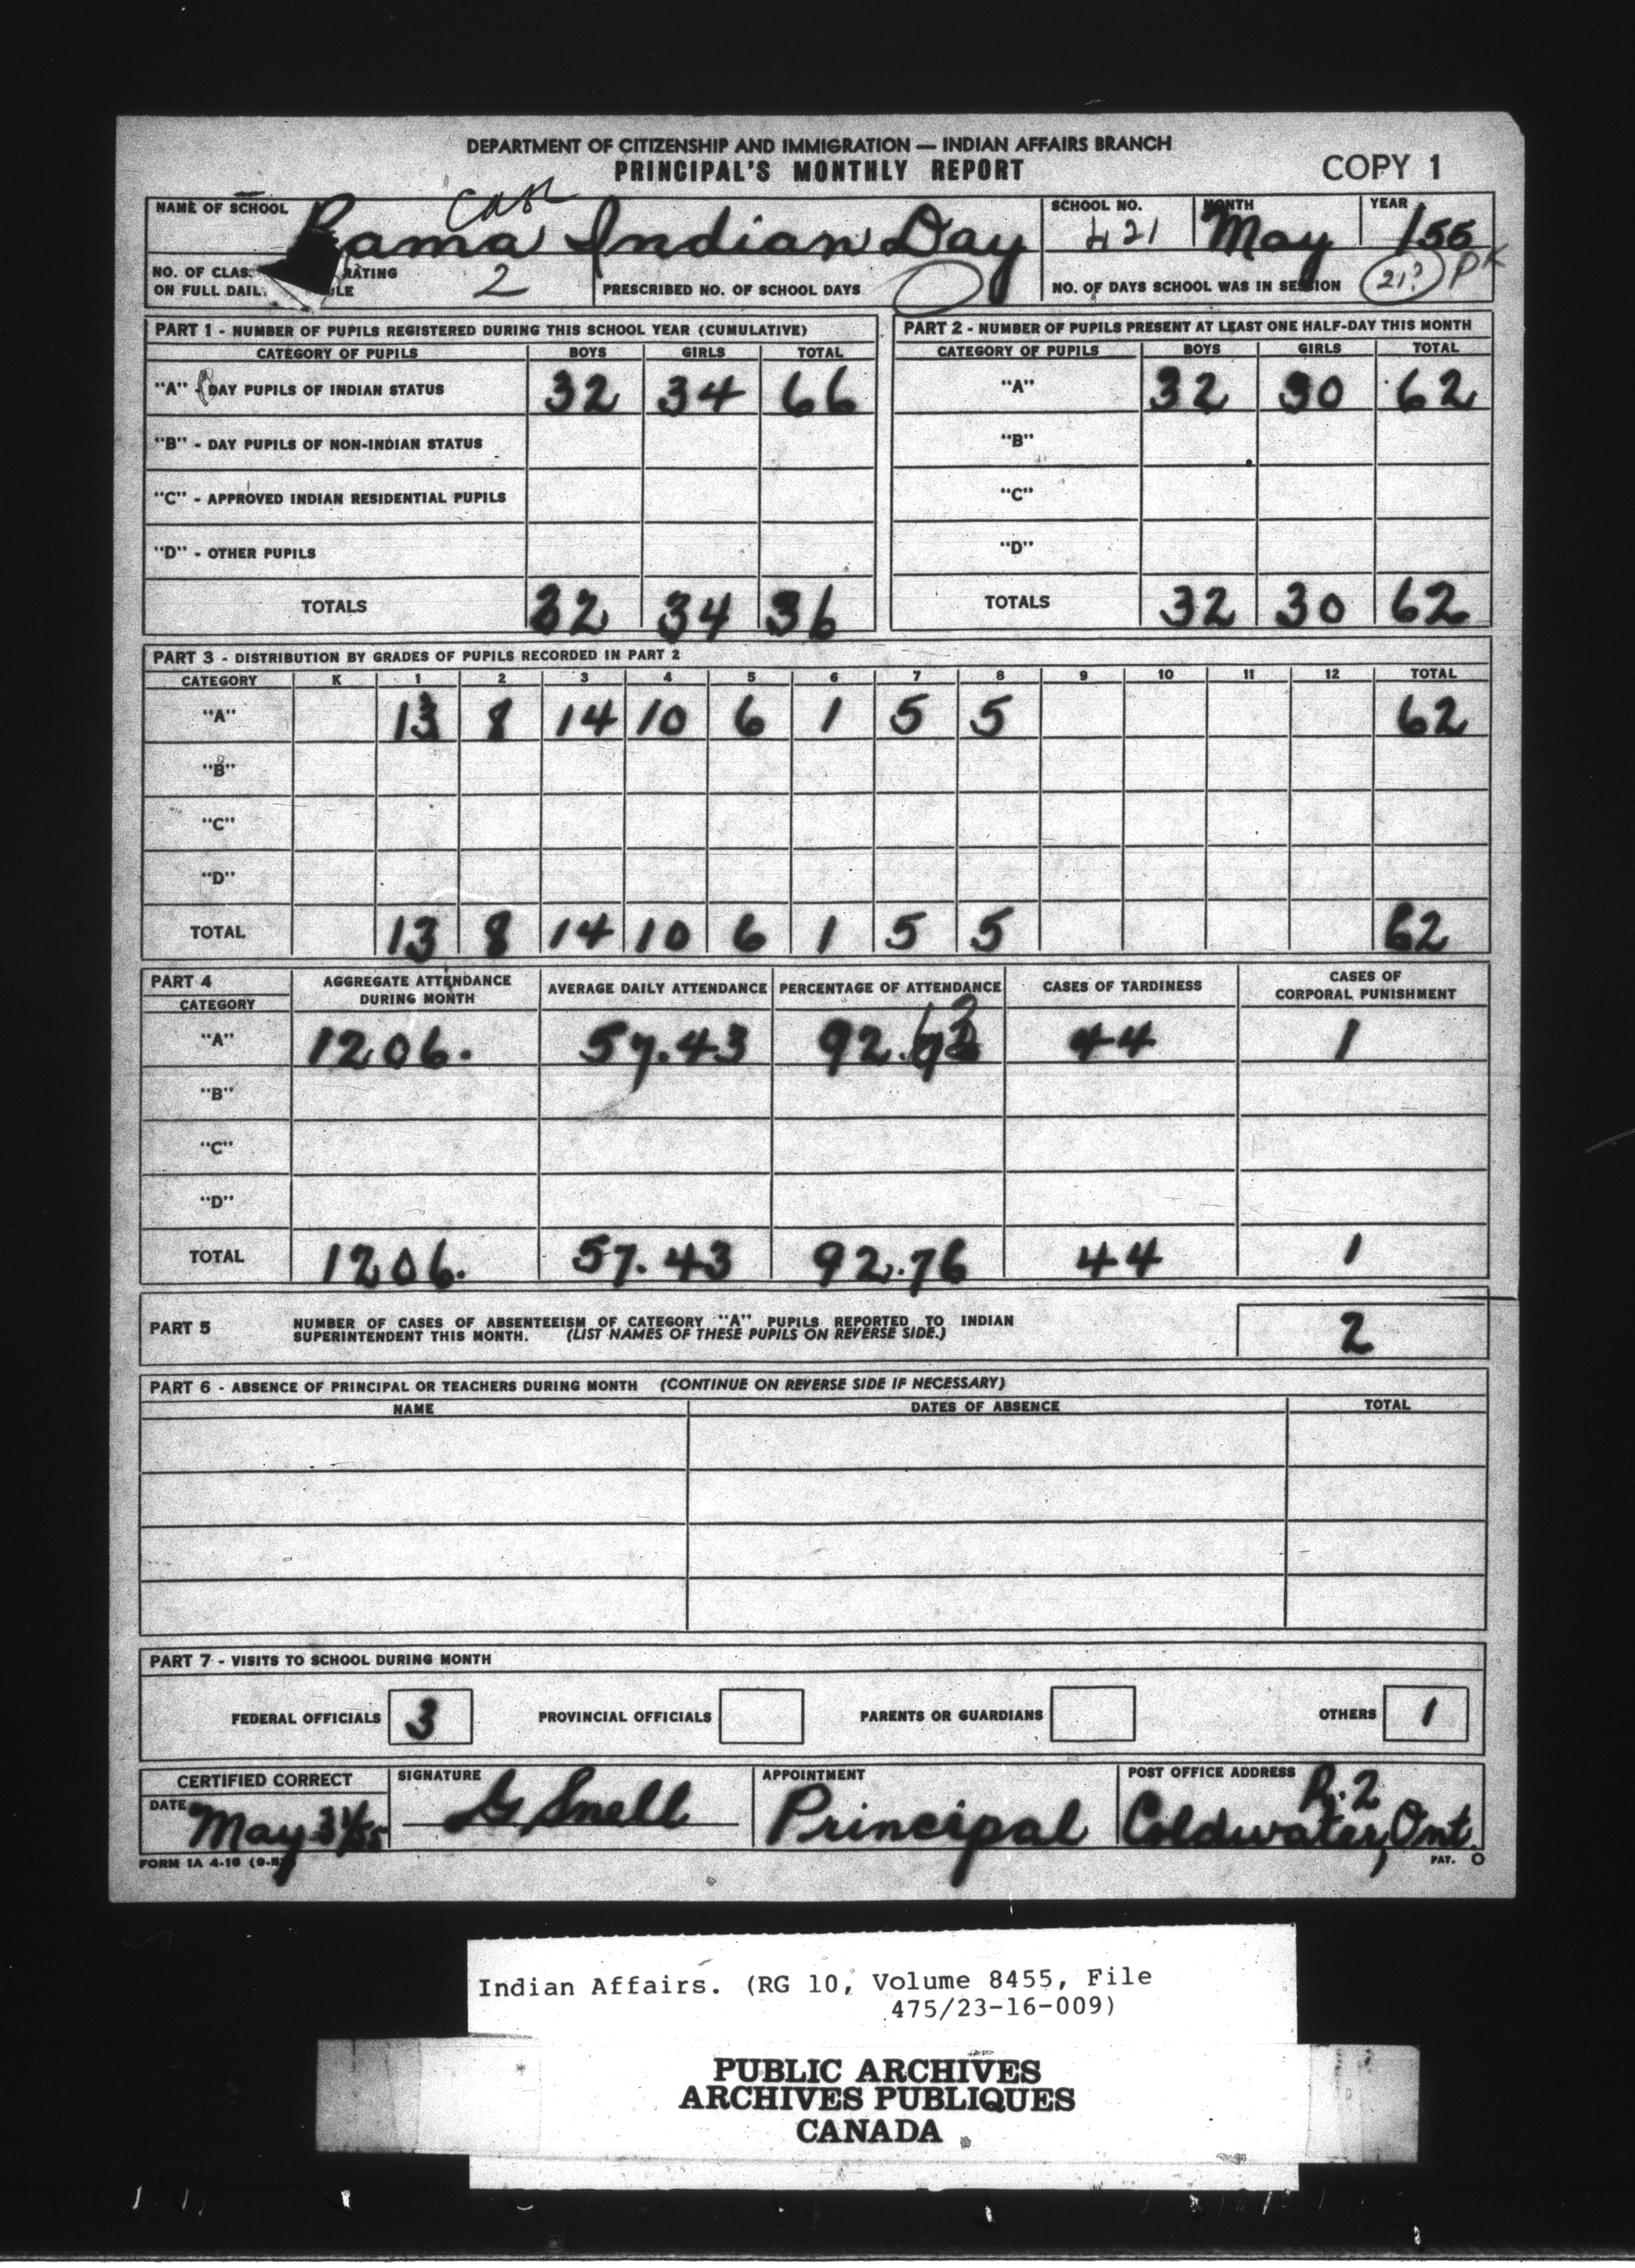 DEPARTMENT OF CITIZENSHIP AND IMMIGRATION — INDIAN AFFAIRS BRANCH
PRINCIPAL'S MONTHLY REPORT
COPY 1
NAME OF SCHOOL Rama Indian Day SCHOOL NO. 421 MONTH May YEAR /55
NO. OF CLAS RATING 2 PRESCRIBED NO. OF SCHOOL DAYS NO. OF DAYS SCHOOL WAS IN SESSION 21? PK
ON FULL DAIL ULE
PART 1 - NUMBER OF PUPILS REGISTERED DURING THIS SCHOOL YEAR (CUMULATIVE)
CATEGORY OF PUPILS BOYS GIRLS TOTAL
"A" - DAY PUPILS OF INDIAN STATUS 32 34 66
"B" - DAY PUPILS OF NON-INDIAN STATUS
"C" - APPROVED INDIAN RESIDENTIAL PUPILS
"D" - OTHER PUPILS
TOTALS 32 34 36
PART 2 - NUMBER OF PUPILS PRESENT AT LEAST ONE HALF-DAY THIS MONTH
CATEGORY OF PUPILS BOYS GIRLS TOTAL
"A" 32 30 62
"B"
"C"
"D"
TOTALS 32 30 62
PART 3 - DISTRIBUTION BY GRADES OF PUPILS RECORDED IN PART 2
CATEGORY K 1 2 3 4 5 6 7 8 9 10 11 12 TOTAL
"A" 13 8 14 10 6 1 5 5 62
"B"
"C"
"D"
TOTAL 13 8 14 10 6 1 5 5 62
PART 4 AGGREGATE ATTENDANCE AVERAGE DAILY ATTENDANCE PERCENTAGE OF ATTENDANCE CASES OF TARDINESS CASES OF
CATEGORY DURING MONTH CORPORAL PUNISHMENT
"A" 1206. 57.43 44 1
"B"
"C"
"D"
TOTAL 1206. 57.43 92.76 44 1
PART 5 NUMBER OF CASES OF ABSENTEEISM OF CATEGORY "A" PUPILS REPORTED TO INDIAN
SUPERINTENDENT THIS MONTH. (LIST NAMES OF THESE PUPILS ON REVERSE SIDE.) 2
PART 6 - ABSENCE OF PRINCIPAL OR TEACHERS DURING MONTH (CONTINUE ON REVERSE SIDE IF NECESSARY)
NAME DATES OF ABSENCE TOTAL
PART 7 - VISITS TO SCHOOL DURING MONTH
FEDERAL OFFICIALS 3 PROVINCIAL OFFICIALS PARENTS OR GUARDIANS OTHERS 1
CERTIFIED CORRECT SIGNATURE APPOINTMENT POST OFFICE ADDRESS R.2
DATE May 31/55 G Snell Principal Coldwater, Ont.
FORM IA 4-16 PAT. O
Indian Affairs. (RG 10, Volume 8455, File
475/23-16-009)
PUBLIC ARCHIVES
ARCHIVES PUBLIQUES
CANADA